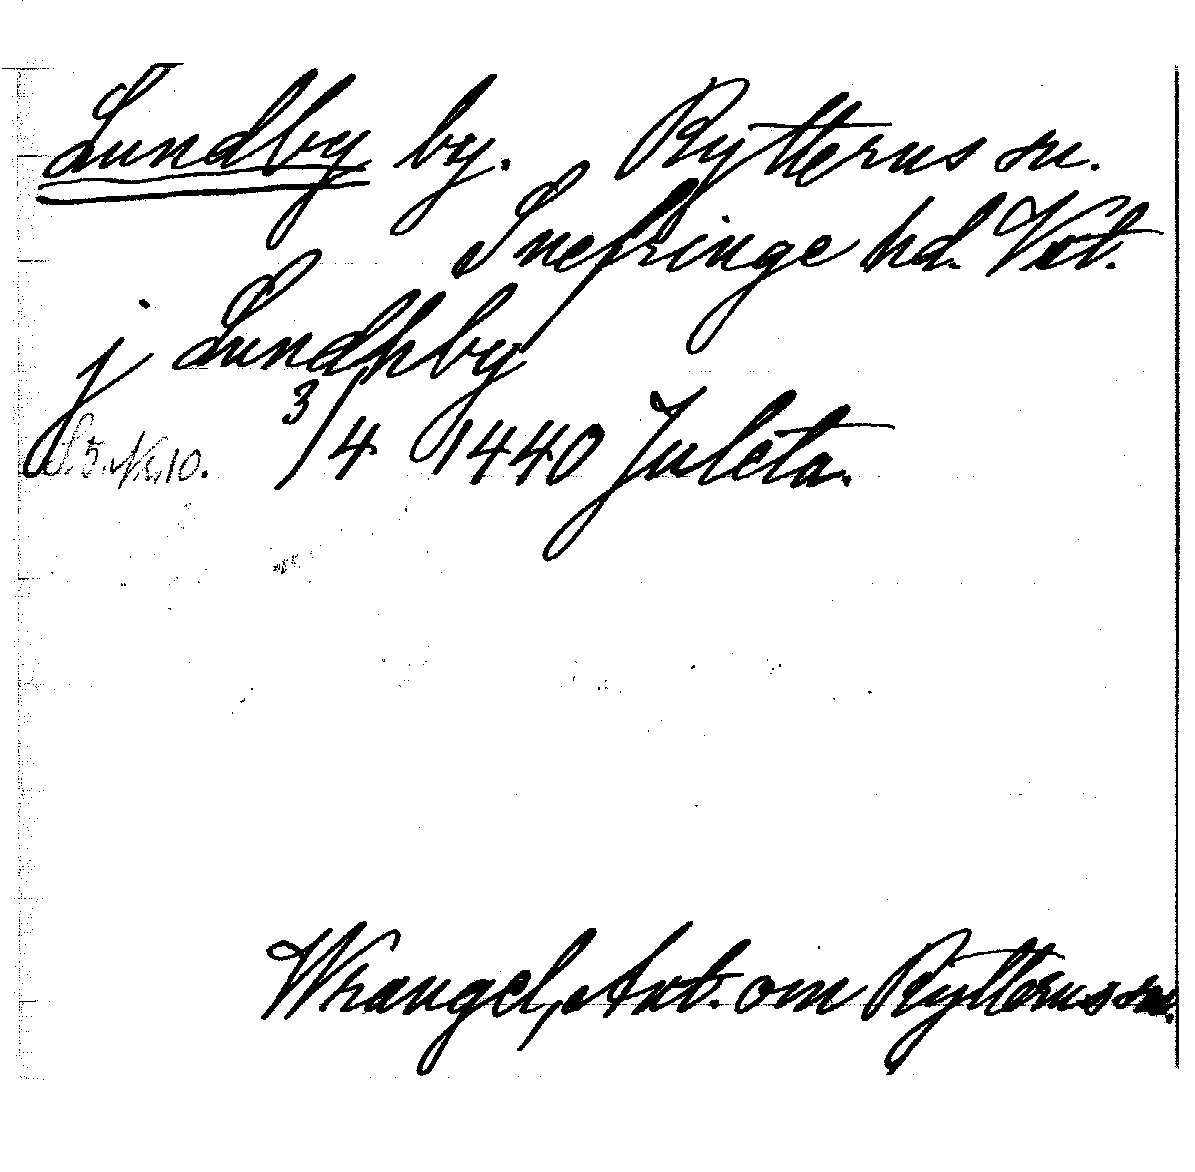 Lundby by. Rytterns sn.
Snefringe hd. Vst.
j Lundhby
3/4 1440 Juleta.
Wrangel, Ant. om Rytterns sn.